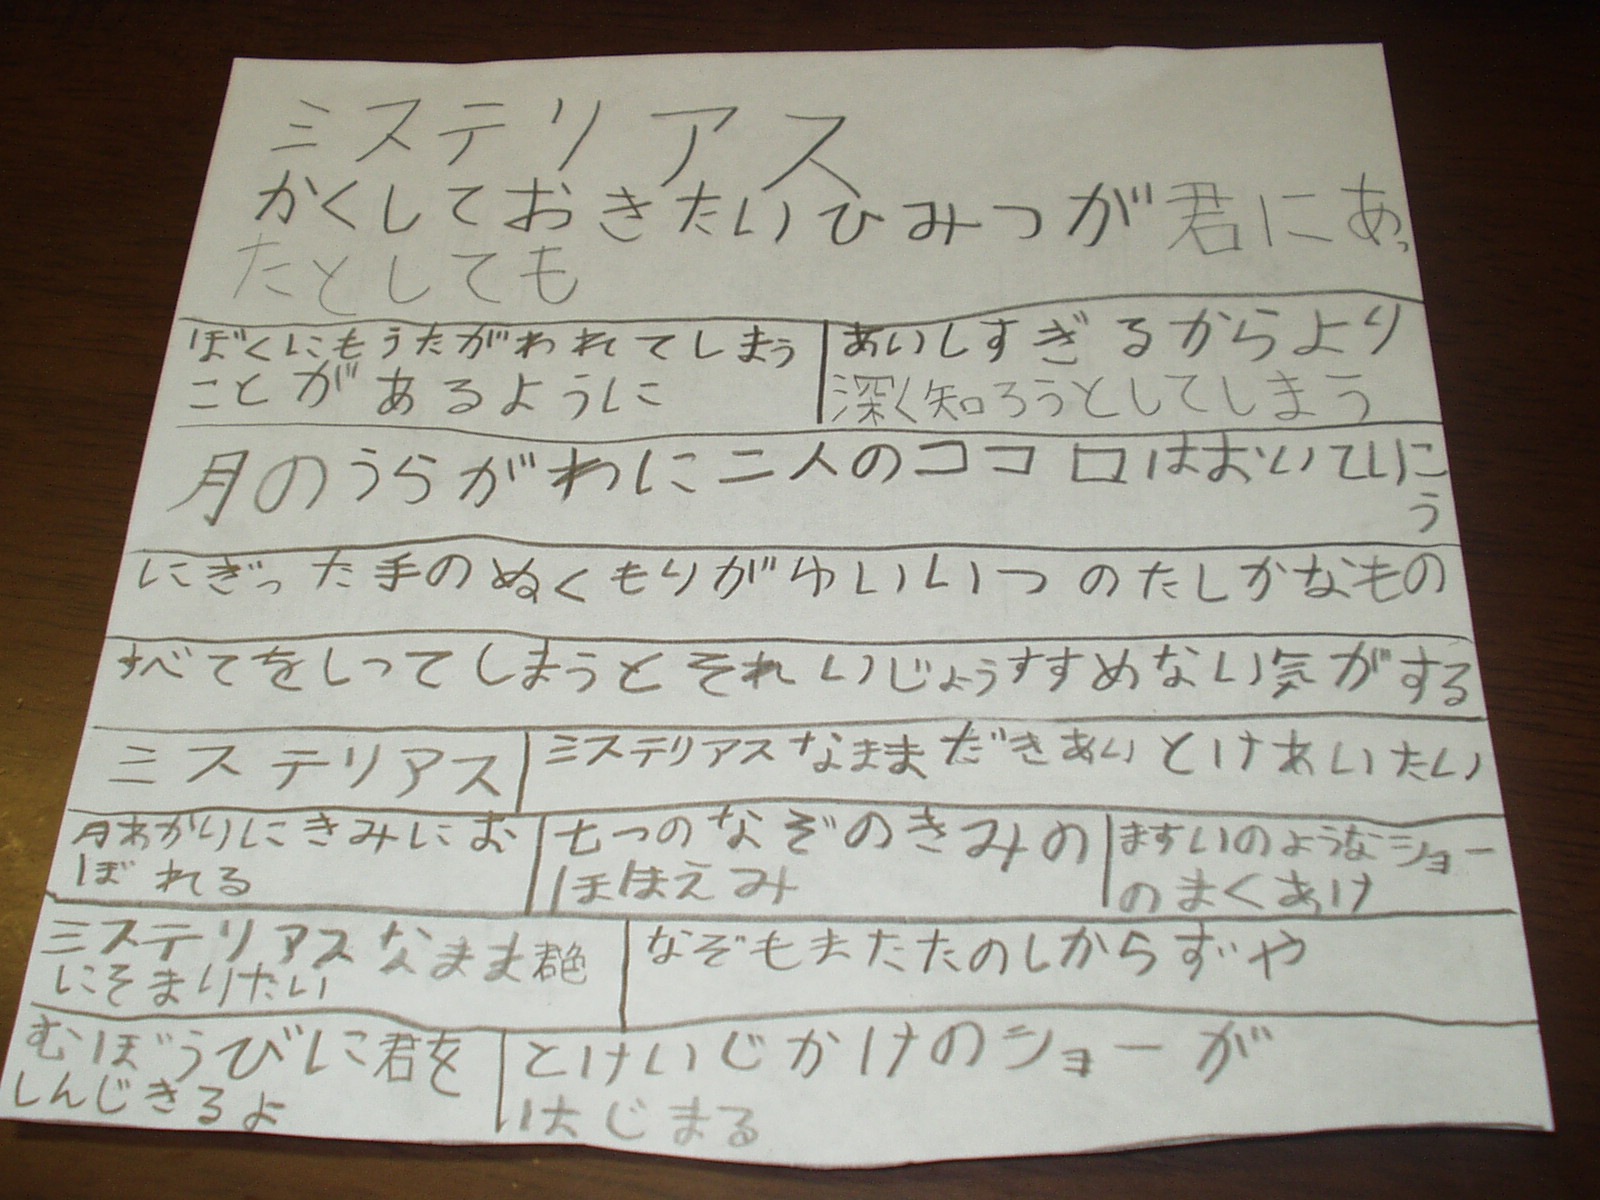 ミステリアス
かくしておきたいひみつが君にあっ
たとしても
ぼくにもうたがわれてしまう
ことがあるように
あいしすぎるからより
深く知ろうとしてしまう
月のうらがわに二人のココロはおいていこ
う
にぎった手のぬくもりがゆいいつのたしかなもの
すべてをしってしまうとそれいじょうすすめない気がする
ミステリアス
ミステリアスなままだきあいとけあいたい
月あかりにきみにお
ぼれる
七つのなぞのきみの
ほほえみ
ますいのようなショー
のまくあけ
ミステリアスなまま君色
にそまりたい
なぞもまたたのしからずや
むぼうびに君を
しんじきるよ
とけいじかけのショーが
はじまる